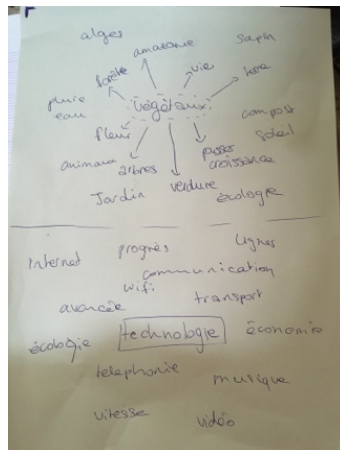 alges
amazonie
sapin
forêts
vie
terre
végétaux
pluie
eau
compost
soleil
fleur
pousser
croissance
animaux
arbres
Jardin
verdure
écologie
Internet
progrès
lignes
communication
wifi
avancée
transport
écologie
technologie
économie
telephonie
musique
vitesse
vidéo